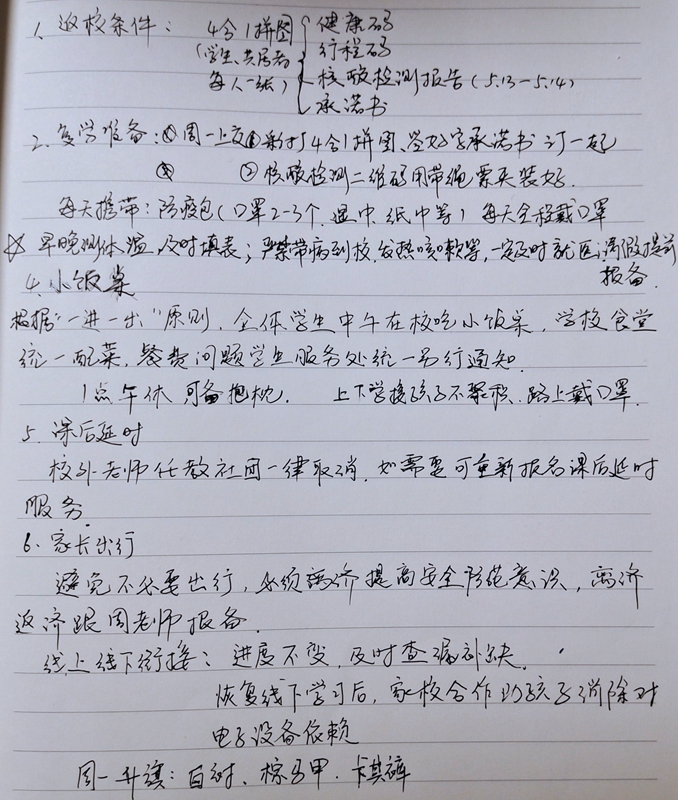 1、返校条件： 4合1拼图 健康码
(学生、共居者 行程码
每人一张) 核酸检测报告(5.13—5.14)
承诺书
2、复学准备：周一上交①彩打4合1拼图、签好字承诺书 订一起
②核酸检测二维码用带绳票夹装好.
每天携带：防疫包(口罩2-3个、湿巾、纸巾等) 每天全程戴口罩
☆ 早晚测体温，及时填表；严禁带病到校，发热咳嗽等，一定及时就医；请假提前
报备.
4、小饭桌
根据“一进一出”原则，全体学生中午在校吃小饭桌，学校食堂
统一配菜，餐费问题学生服务处统一另行通知.
1点午休 可备抱枕. 上下学接孩子不聚积、路上戴口罩.
5、课后延时
校外老师任教社团一律取消，如需要可重新报名课后延时
服务.
6、家长出行
避免不必要出行，必须离济提高安全防范意识，离济
返济跟周老师报备.
线上线下衔接：进度不变，及时查漏补缺.
恢复线下学习后，家校合作助孩子消除对
电子设备依赖
周一升旗：白衬、棕马甲、卡其裤